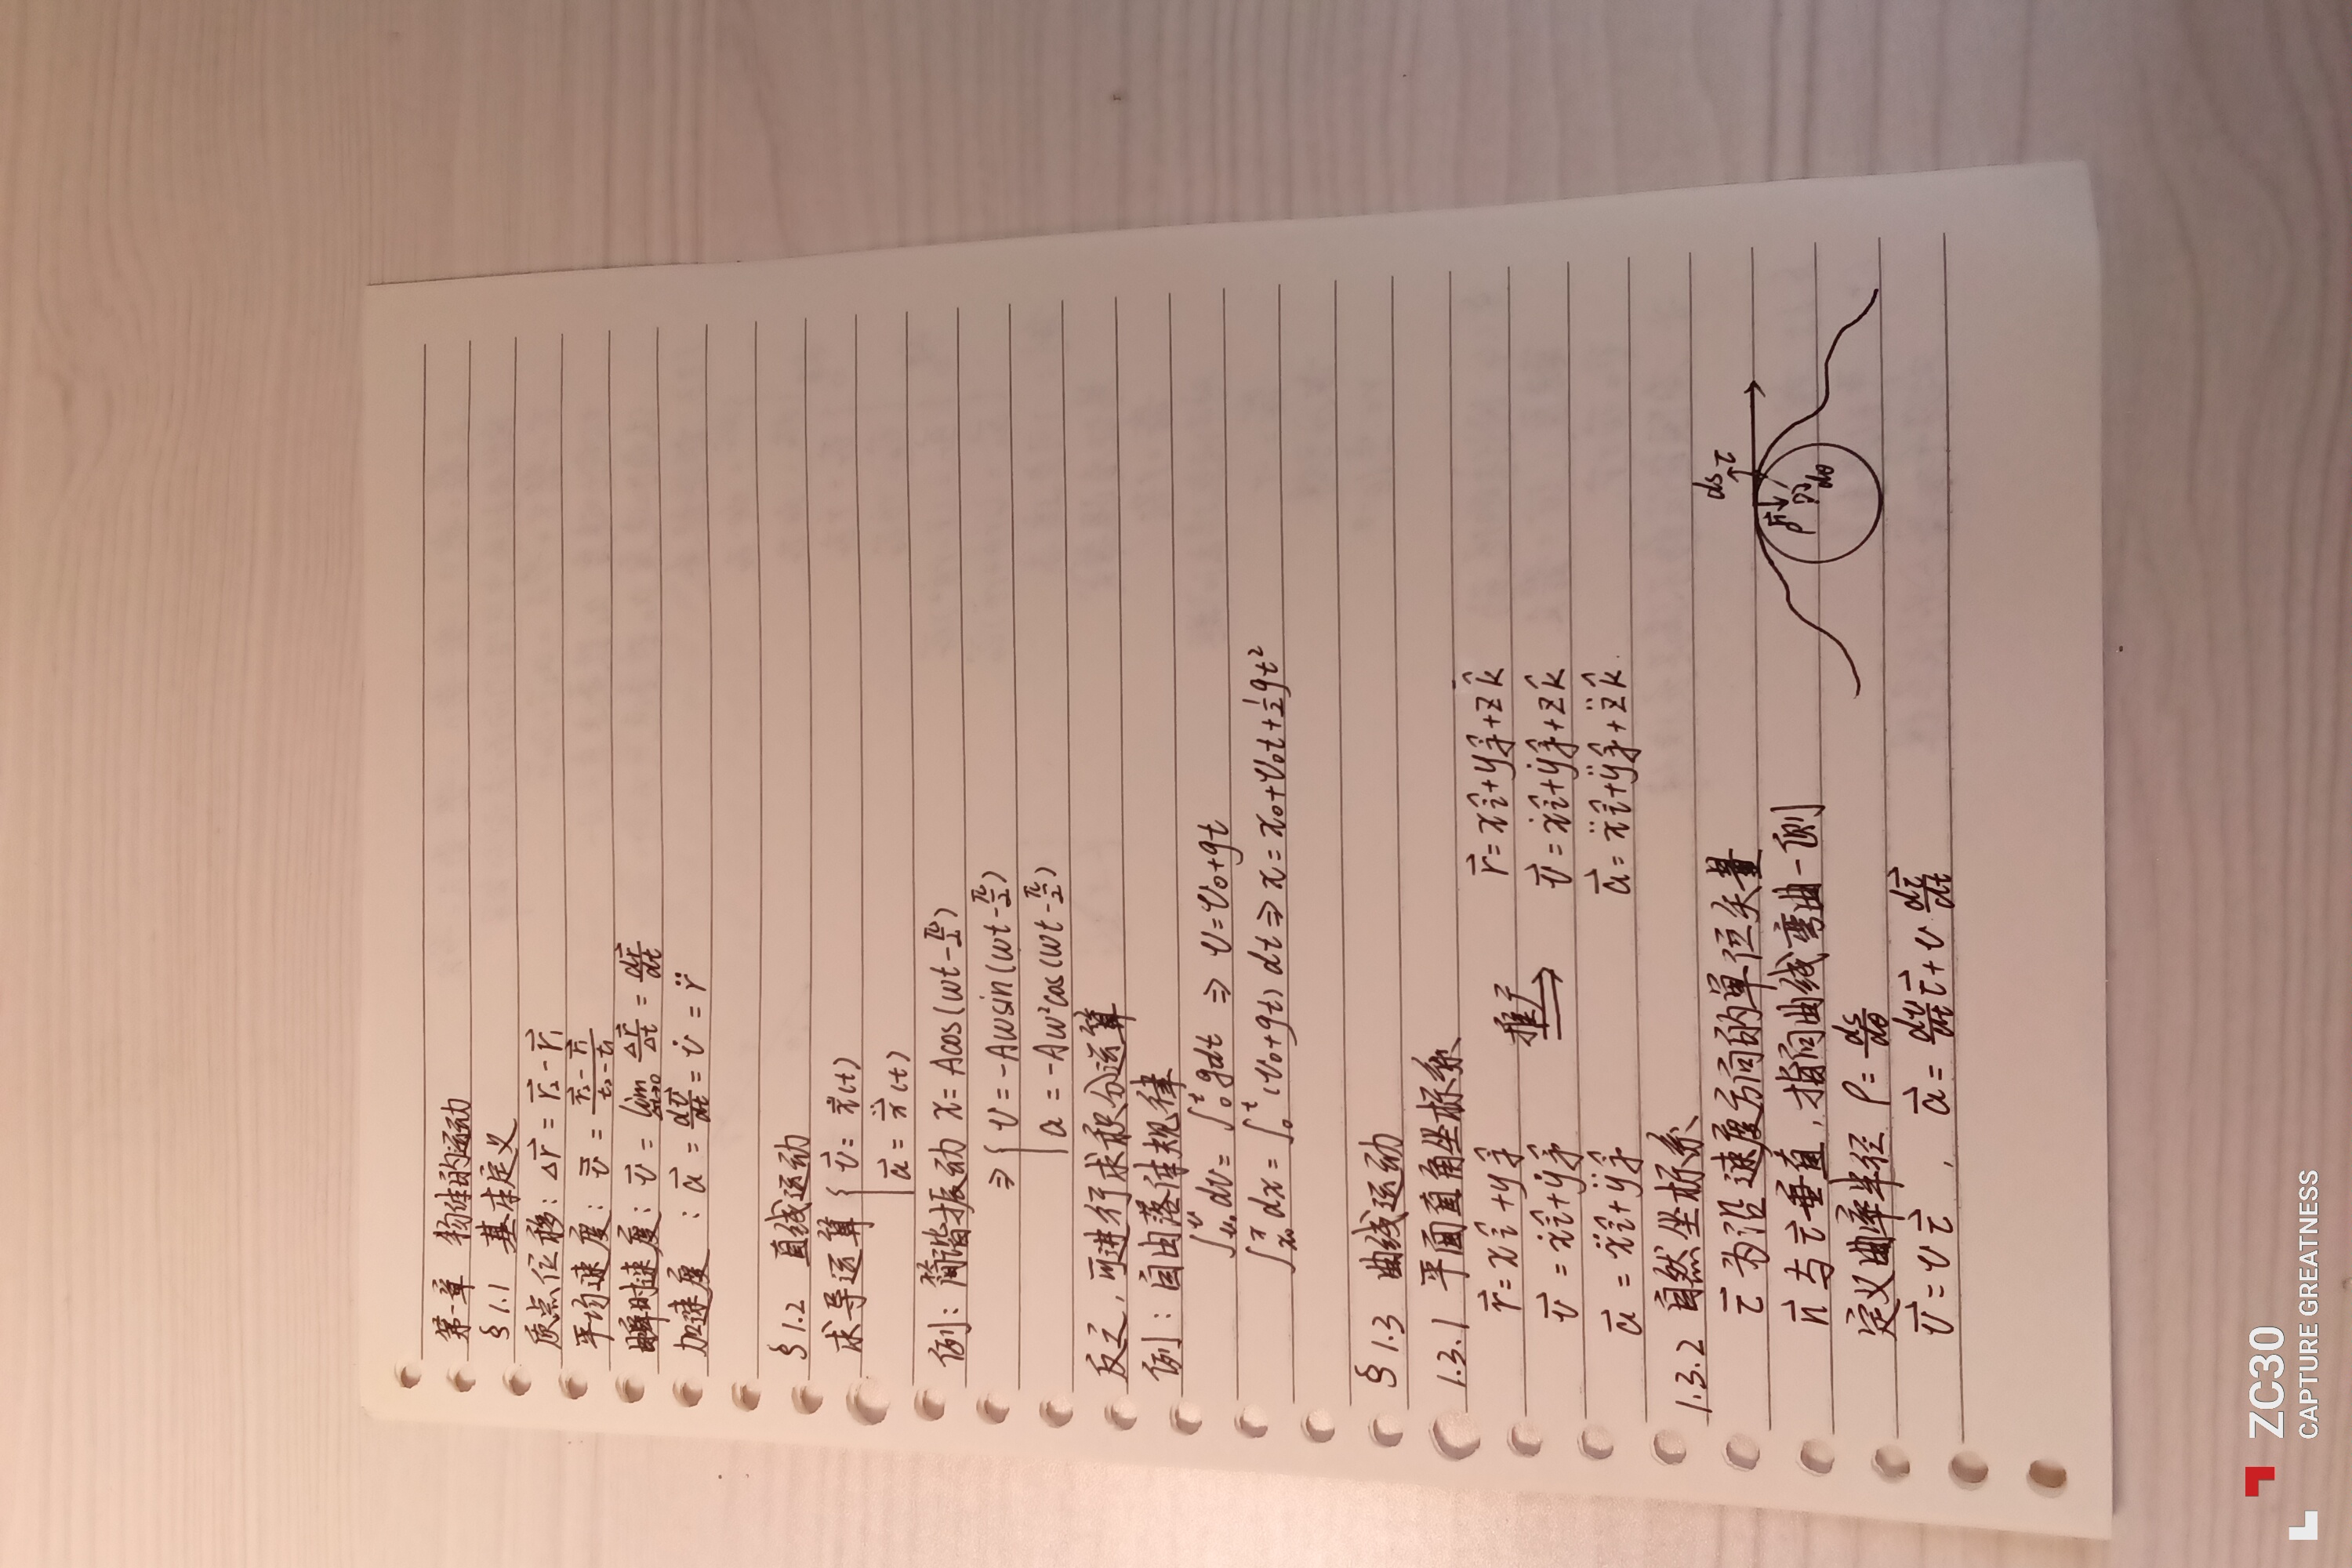 第一章 物体的运动
§1.1 基本定义
质点位移: Δr⃗ = r⃗₂ - r⃗₁
平均速度: v̄⃗ = (r⃗₂ - r⃗₁)/(t₂ - t₁)
瞬时速度: v⃗ = lim_{Δt→0} Δr⃗/Δt = dr⃗/dt
加速度: a⃗ = dv⃗/dt = v̇⃗ = r̈⃗
§1.2 直线运动
求导运算 { v⃗ = ẋ⃗(t)
a⃗ = ẍ⃗(t)
例: 简谐振动 x = Acos(ωt - π/2)
⇒ { v = -Aωsin(ωt - π/2)
a = -Aω²cos(ωt - π/2)
反之, 可进行求积分运算
例: 自由落体规律
∫_{v₀}^{v} dv = ∫₀ᵗ gdt ⇒ v = v₀ + gt
∫_{x₀}^{x} dx = ∫₀ᵗ (v₀ + gt) dt ⇒ x = x₀ + v₀t + ½gt²
§1.3 曲线运动
1.3.1 平面直角坐标系
r⃗ = xî + yĵ 推广 ⇒ r⃗ = xî + yĵ + zk̂
v⃗ = ẋî + ẏĵ v⃗ = ẋî + ẏĵ + żk̂
a⃗ = ẍî + ÿĵ a⃗ = ẍî + ÿĵ + z̈k̂
1.3.2 自然坐标系
τ⃗ 为沿速度方向的单位矢量
n⃗ 与 τ⃗ 垂直, 指向曲线弯曲一侧
定义曲率半径 ρ = ds/dθ
v⃗ = vτ⃗, a⃗ = dv/dt τ⃗ + v dτ⃗/dt
ds τ⃗
n⃗
ρ dθ
ZC30
CAPTURE GREATNESS